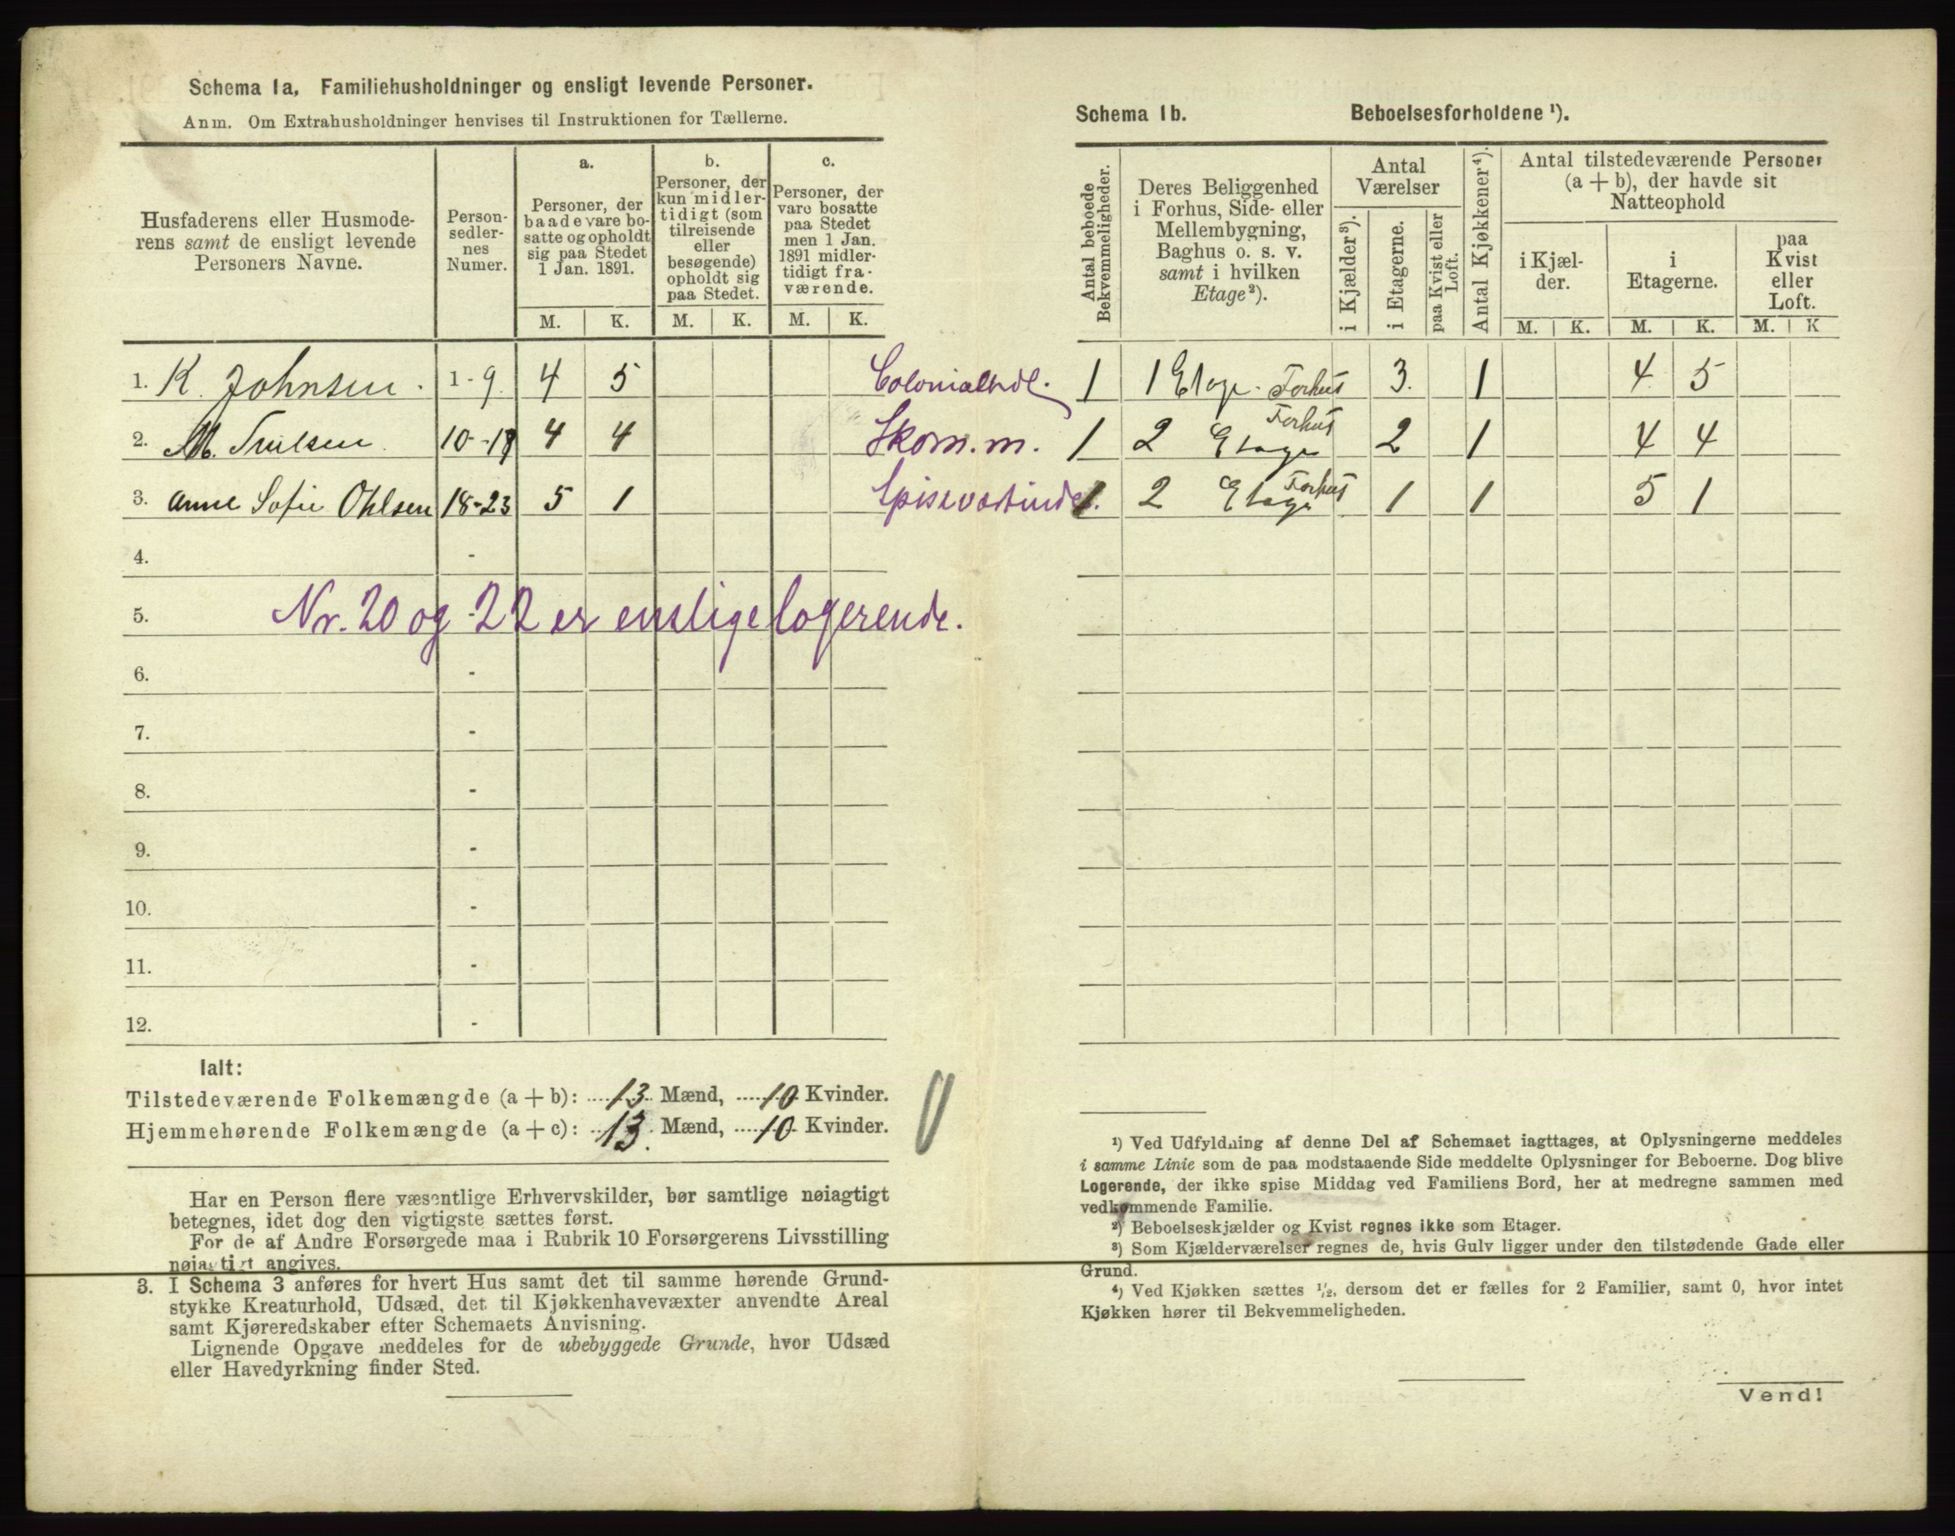 Schema 1a. Familiehusholdninger og ensligt levende Personer.
Anm. Om Extrahusholdninger henvises til Instruktionen for Tællerne.
Husfaderens eller Husmode-
rens samt de ensligt levende
Personers Navne.
Person-
sedler-
nes
Numer.
a.
Personer, der
baade vare bo-
satte og opholdt
sig paa Stedet
1 Jan. 1891.
b.
Personer, der
kun midler-
tidigt (som
tilreisende
eller
besøgende)
opholdt sig
paa Stedet.
c.
Personer, der
vare bosatte
paa Stedet
men 1 Jan.
1891 midler-
tidigt fra-
værende.
M. K. M. K. M. K.
1. K. Johnsen. 1-9. 4 5 Colonialhdl.
2. M. Trulsen 10-17 4 4 Skom. m.
3. Anne Sofie Ohlsen 18-23 5 1 Spisevertinde.
4. -
5. Nr. 20 og 22 er enslige logerende.
6. -
7. -
8. -
9. -
10. -
11. -
12. -
Ialt:
Tilstedeværende Folkemængde (a + b): 13 Mænd, 10 Kvinder.
Hjemmehørende Folkemængde (a + c): 13. Mænd, 10 Kvinder.
Har en Person flere væsentlige Erhvervskilder, bør samtlige nøiagtigt
betegnes, idet dog den vigtigste sættes først.
For de af Andre Forsørgede maa i Rubrik 10 Forsørgerens Livsstilling
nøiagtigt angives.
3. I Schema 3 anføres for hvert Hus samt det til samme hørende Grund-
stykke Kreaturhold, Udsæd, det til Kjøkkenhavevæxter anvendte Areal
samt Kjøreredskaber efter Schemaets Anvisning.
Lignende Opgave meddeles for de ubebyggede Grunde, hvor Udsæd
eller Havedyrkning finder Sted.
Schema 1b. Beboelsesforholdene ¹).
Antal beboede
Bekvemmeligheder.
Deres Beliggenhed
i Forhus, Side- eller
Mellembygning,
Baghus o. s. v.
samt i hvilken
Etage²).
Antal
Værelser
i Kjælder³).
i Etagerne.
paa Kvist eller
Loft.
Antal Kjøkkener⁴).
Antal tilstedeværende Personer
(a + b), der havde sit
Natteophold
i Kjæl-
der.
i
Etagerne.
paa
Kvist
eller
Loft.
M. K. M. K. M. K
1 1 Etage. Forhus 3. 1 4 5
1 2 Etage Forhus 2 1 4 4
1. 2 Etage Forhus 1 1 5 1
¹) Ved Udfyldning af denne Del af Schemaet iagttages, at Oplysningerne meddeles
i samme Linie som de paa modstaaende Side meddelte Oplysninger for Beboerne. Dog blive
Logerende, der ikke spise Middag ved Familiens Bord, her at medregne sammen med
vedkommende Familie.
²) Beboelseskjælder og Kvist regnes ikke som Etager.
³) Som Kjælderværelser regnes de, hvis Gulv ligger under den tilstødende Gade eller
Grund.
⁴) Ved Kjøkken sættes ¹/₂, dersom det er fælles for 2 Familier, samt 0, hvor intet
Kjøkken hører til Bekvemmeligheden.
Vend!